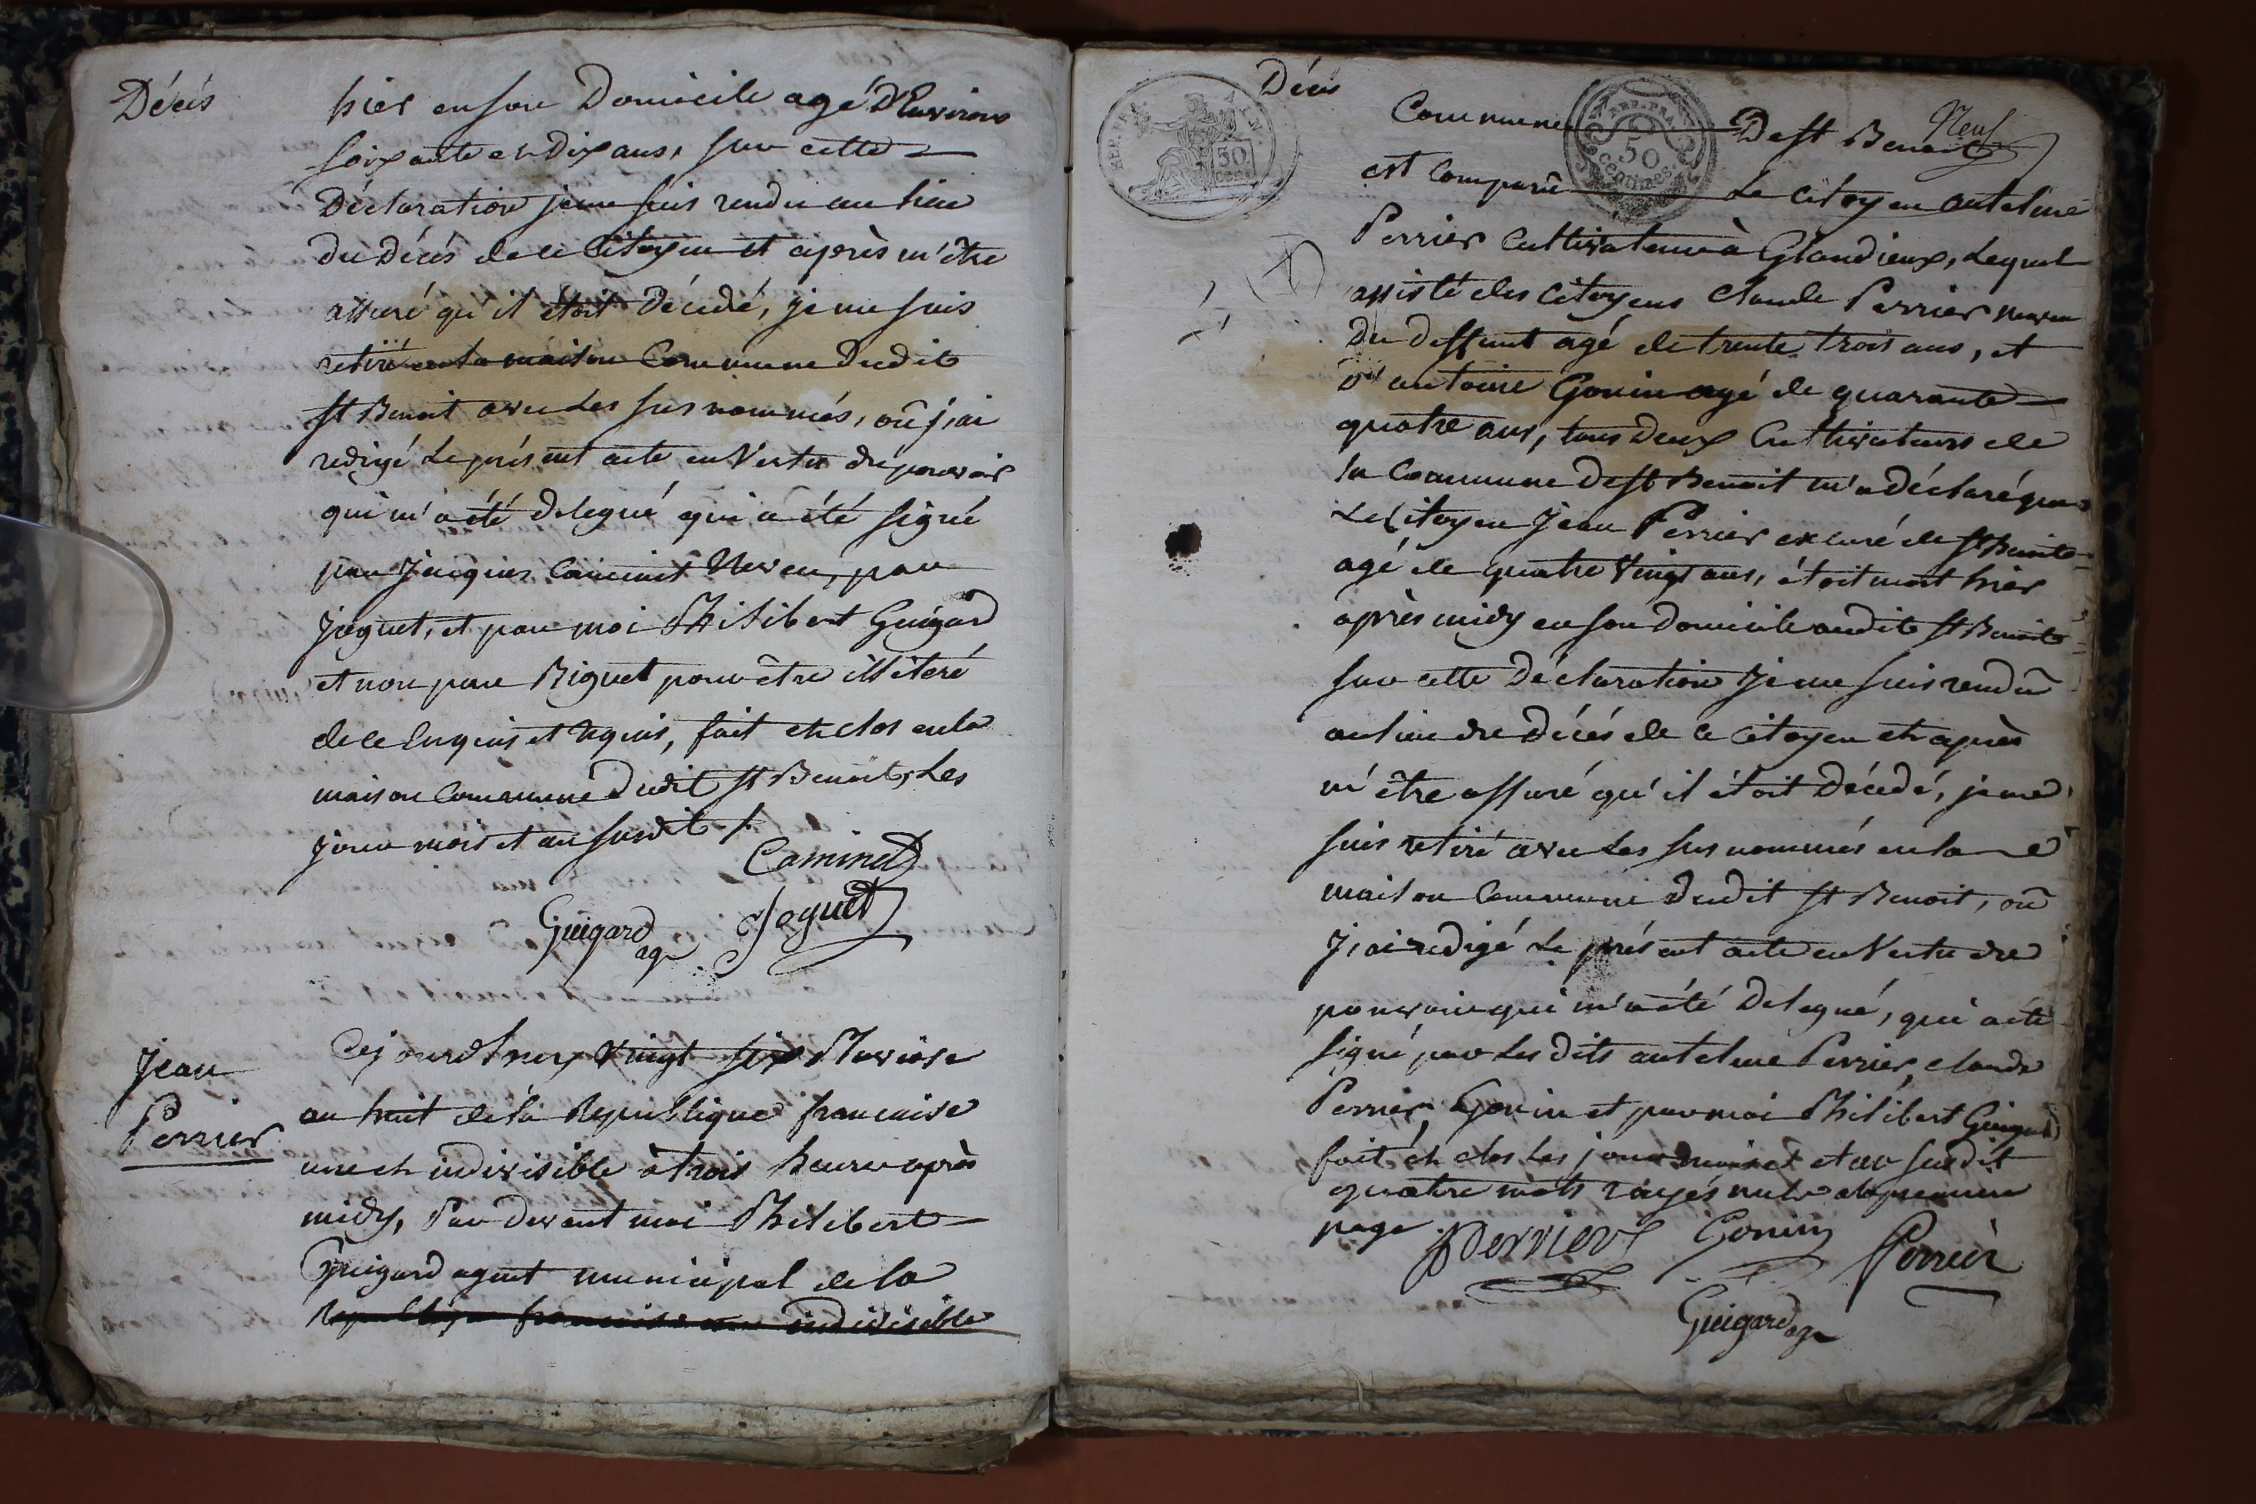 Décés
hier en son Domicile agé D'Environ
soixante et dix ans, sur cette
Déclaration je me suis rendu au lieu
du Décés de ce Citoyen et après m'être
assuré qu'il étoit Décedé, je me suis
retiré en la maison Commune dudit
st Benoit avec Les sus nommés, où j'ai
redigé Le présent acte en Vertu du pouvoir
qui m'a été Delegué qui a été signé
par Jacques Caminet Neveu, par
Joguet, et par moi Philibert Guigard
et non par Biguet pour être illiteré
de ce Enquis et Requis, fait et clos en la
maison Commune Dudit st Benoit, Les
jour mois et an susdit ./.
Caminet
Guigard ag. Joguet
Jean
Perrier
Cejourd'huy Vingt six Pluviose
an huit de la Republique francaise
une et indivisible à trois heures après
midy, Par devant moi Philibert
Guigard agent municipal de la
Republique francaise une indivisible
Décés
REP. FRA.
50
cent.
REP. FRA.
50
centimes
Neuf
Commune De st Benoit
est comparu Le Citoyen antelme
Perrier Cultivateur à Glandieux, Lequel
assisté des Citoyens Claude Perrier neveu
Du deffunt agé de trente trois ans, et
D'antoine Gonin agé de quarante
quatre ans, tous Deux Cultivateurs de
la Commune De st Benoit m'a Déclaré que
Le Citoyen Jean Perrier ex curé de st Benoit
agé de quatre Vingt ans, étoit mort hier
après midy en son Domicile audit st Benoit
sur cette Déclaration Je me suis rendu
au lieu du Décés de ce Citoyen et après
m'être assuré qu'il étoit Décedé, je me
suis retiré avec Les sus nommés en la
maison Commune Dudit st Benoit, où
J'ai redigé Le présent acte en Vertu du
pouvoir qui m'a été Delegué, qui a été
signé par Les dits antelme Perrier, Claude
Perrier, Gonin et par moi Philibert Guigard
fait et clos Les jour mois et an susdit
quatre mots rayés nuls a la premiere
page
Perrier Gonin Perrier
Guigard ag.